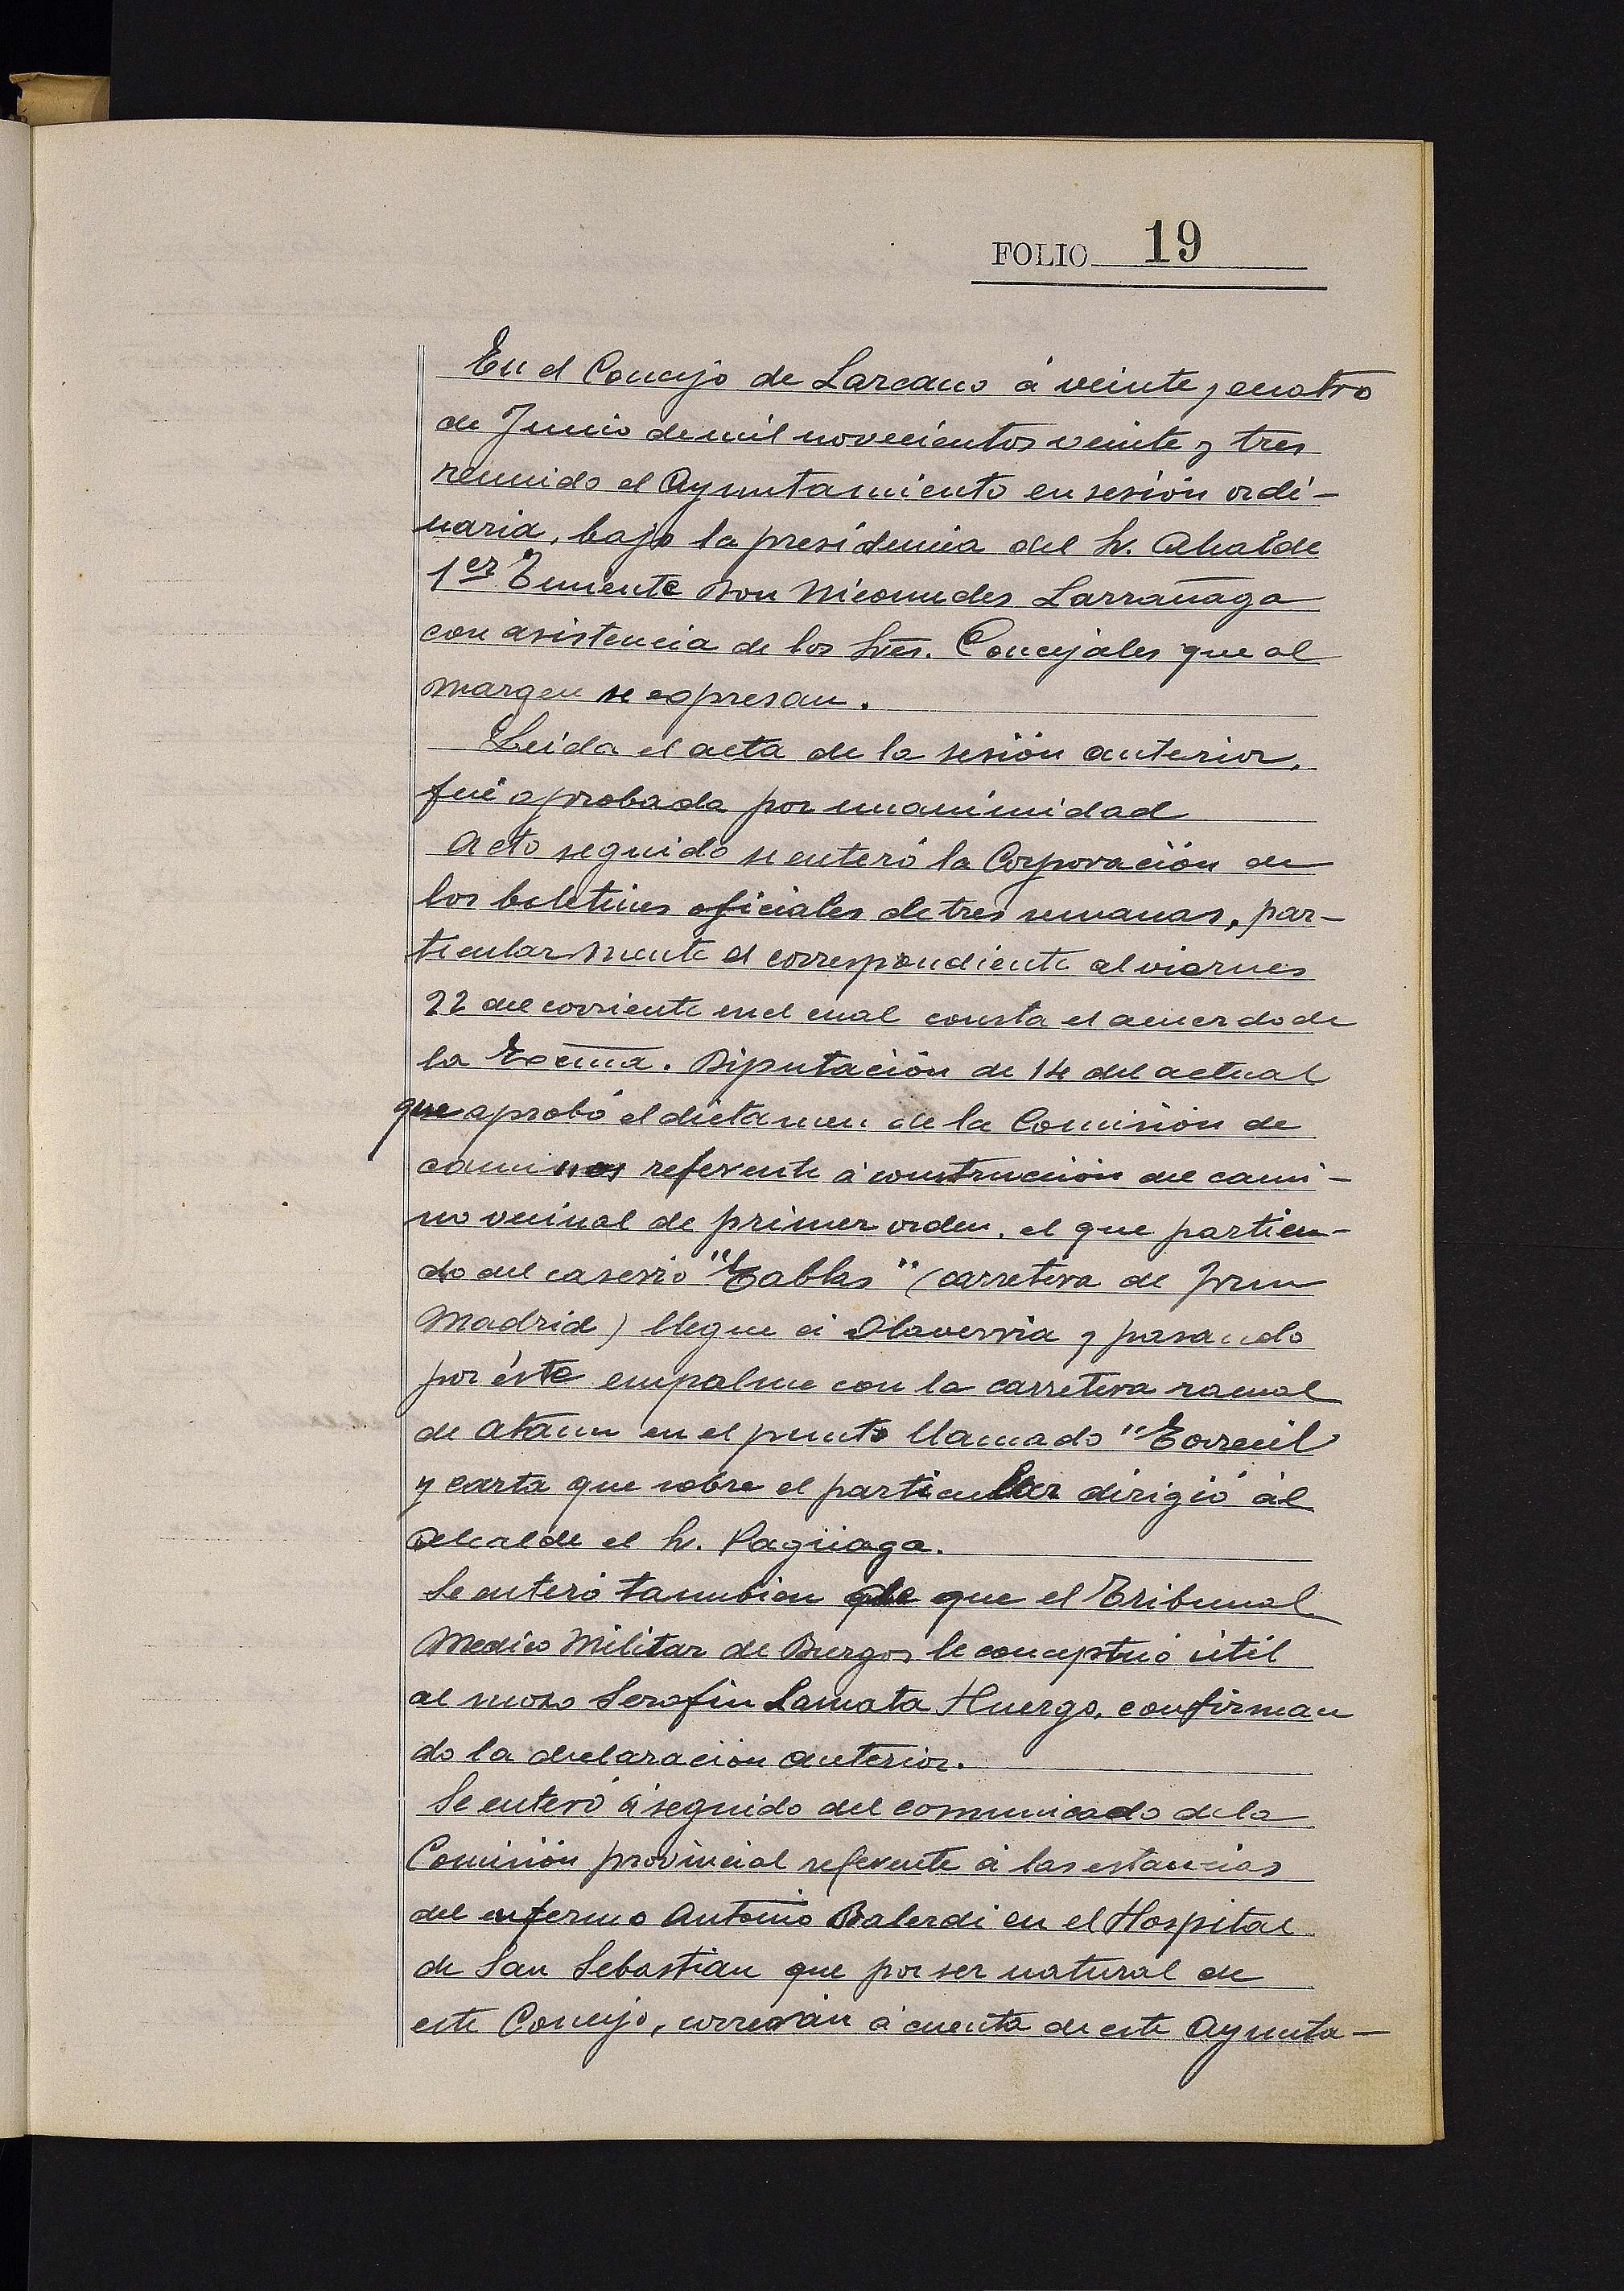 FOLIO 19
En el Concejo de Lazcano á veinte y cuatro
de Junio de mil novecientos veinte y tres
reunido el Ayuntamiento en sesión ordi-
naria, bajo la presidencia del Sr. Alcalde
1er Teniente Don Nicomedes Larrañaga
con asistencia de los Sres. Concejales que al
margen se expresan.
Leida el acta de la sesión anterior,
fué aprobada por unanimidad
Acto seguido se enteró la Corporación de
los boletines oficiales de tres semanas, par-
ticularmente el correspondiente al viernes
22 del corriente en el cual consta el acuerdo de
la Excma. Diputación de 14 del actual
que aprobó el dictamen de la Comisión de
caminos referente á construcción del cami-
no vecinal de primer orden, el que partien-
do del caserio "Tablas" (carretera de Irun
Madrid) llegue á Olaverria y pasando
por éste empalme con la carretera ramal
de Ataun en el punto llamado "Torreil
y carta que sobre el particular dirigió al
Alcalde el Sr. Pagüaga.
Se enteró tambien de que el Tribunal
Medico Militar de Burgos le conceptuó útil
al mozo Serafin Lamata Huergo, confirman
do la declaración anterior.
Se enteró á seguido del comunicado de la
Comisión provincial referente á las estancias
del enfermo Antonio Balerdi en el Hospital
de San Sebastian que por ser natural de
este Concejo, correrán á cuenta de este Ayunta-